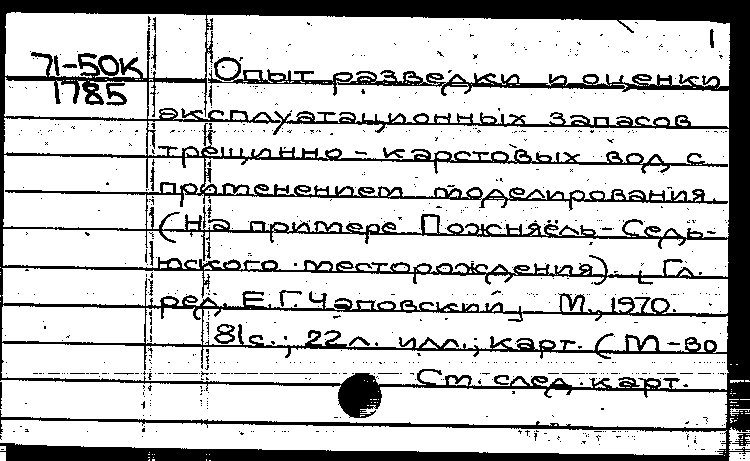 1
71-50К
1785
Опыт разведки и оценки
эксплуатационных запасов
трещинно-карстовых вод с
применением моделирования.
(На примере Пожняёль-Седь-
юского месторождения). [Гл.
ред. Е.Г. Чаповский] М., 1970.
81с.; 22л. илл.; карт. (М-во
См. след. карт.